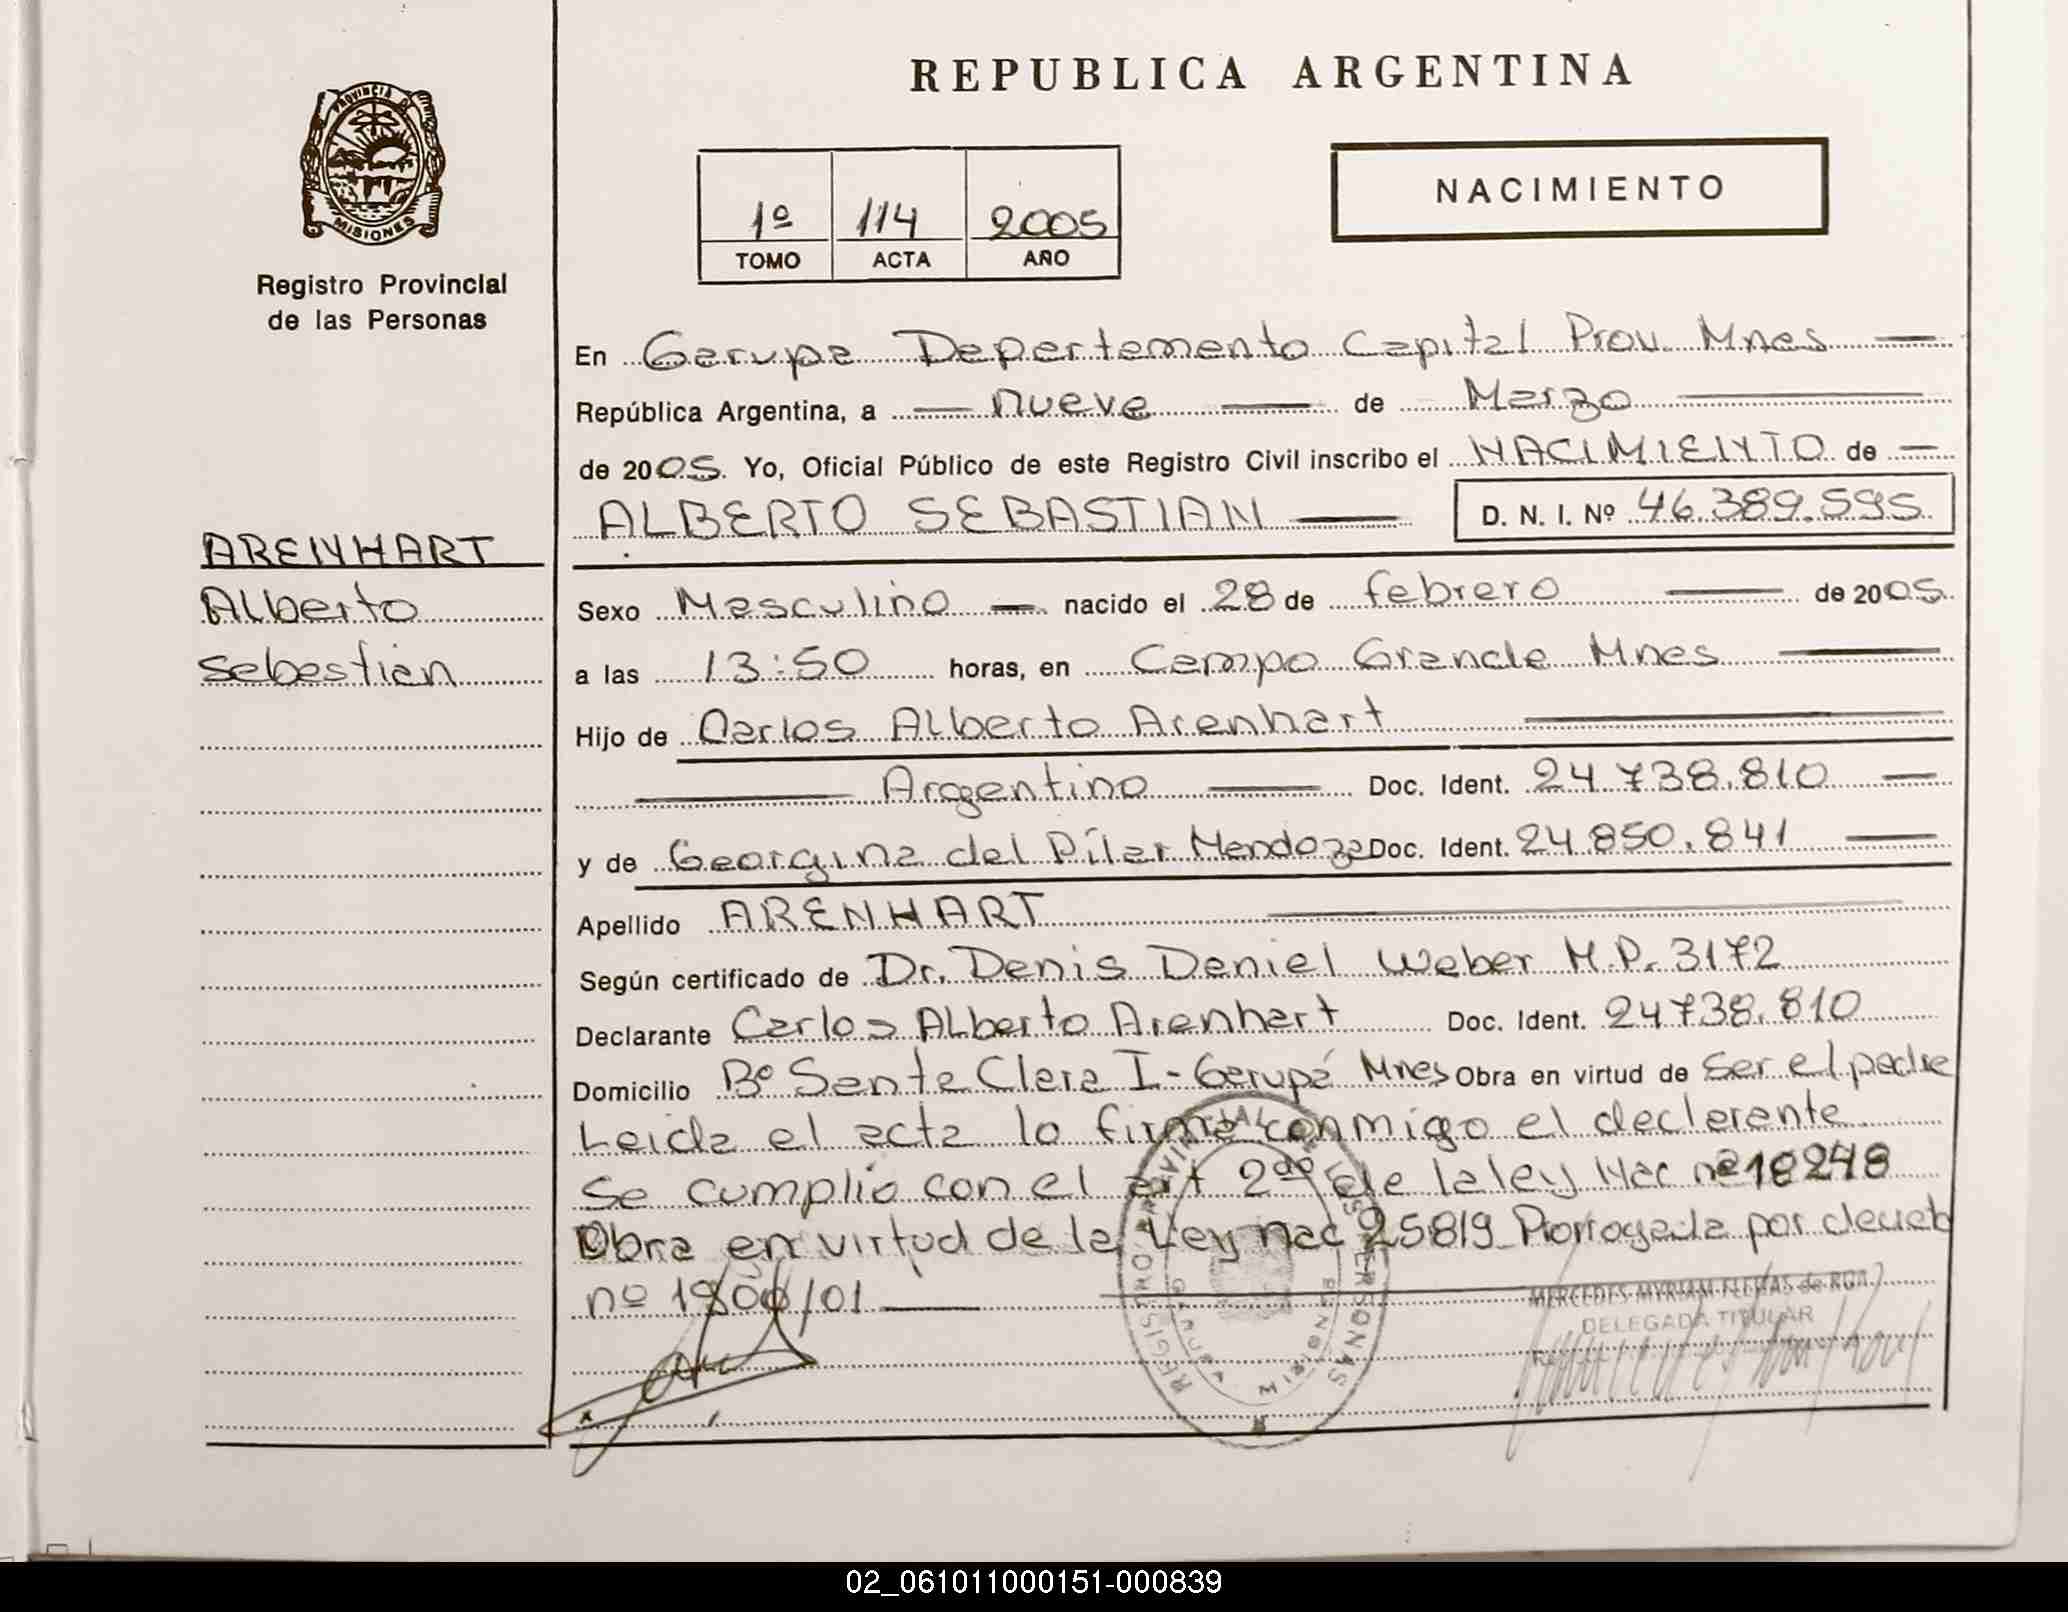 REPUBLICA ARGENTINA
PROVINCIA DE
MISIONES
Registro Provincial
de las Personas
1º 114 2005
TOMO ACTA AÑO
NACIMIENTO
En Garupa Departamento Capital Prov. Mnes
República Argentina, a nueve de Marzo
de 2005. Yo, Oficial Público de este Registro Civil inscribo el NACIMIENTO de
ALBERTO SEBASTIAN D. N. I. Nº 46.389.595
ARENHART
Alberto
Sebastian
Sexo Masculino nacido el 28 de febrero de 2005
a las 13:50 horas, en Campo Grande Mnes
Hijo de Carlos Alberto Arenhart
Argentino Doc. Ident. 24.738.810
y de Georgina del Pilar Mendoza Doc. Ident. 24.850.841
Apellido ARENHART
Según certificado de Dr. Denis Daniel Weber M.P. 3172
Declarante Carlos Alberto Arenhart Doc. Ident. 24738.810
Domicilio Bº Santa Clara I - Garupá Mnes Obra en virtud de ser el padre
Leida el acta lo firma conmigo el declarante
Se cumplio con el art 2do de la ley Nac nº 18248
Obra en virtud de la Ley nac 25819 Prorrogada por decreto
nº 1900/01
REGISTRO PROVINCIAL DE LAS PERSONAS
GARUPA MISIONES
MERCEDES MYRIAM FLEITAS de ROA
DELEGADA TITULAR
02_061011000151-000839